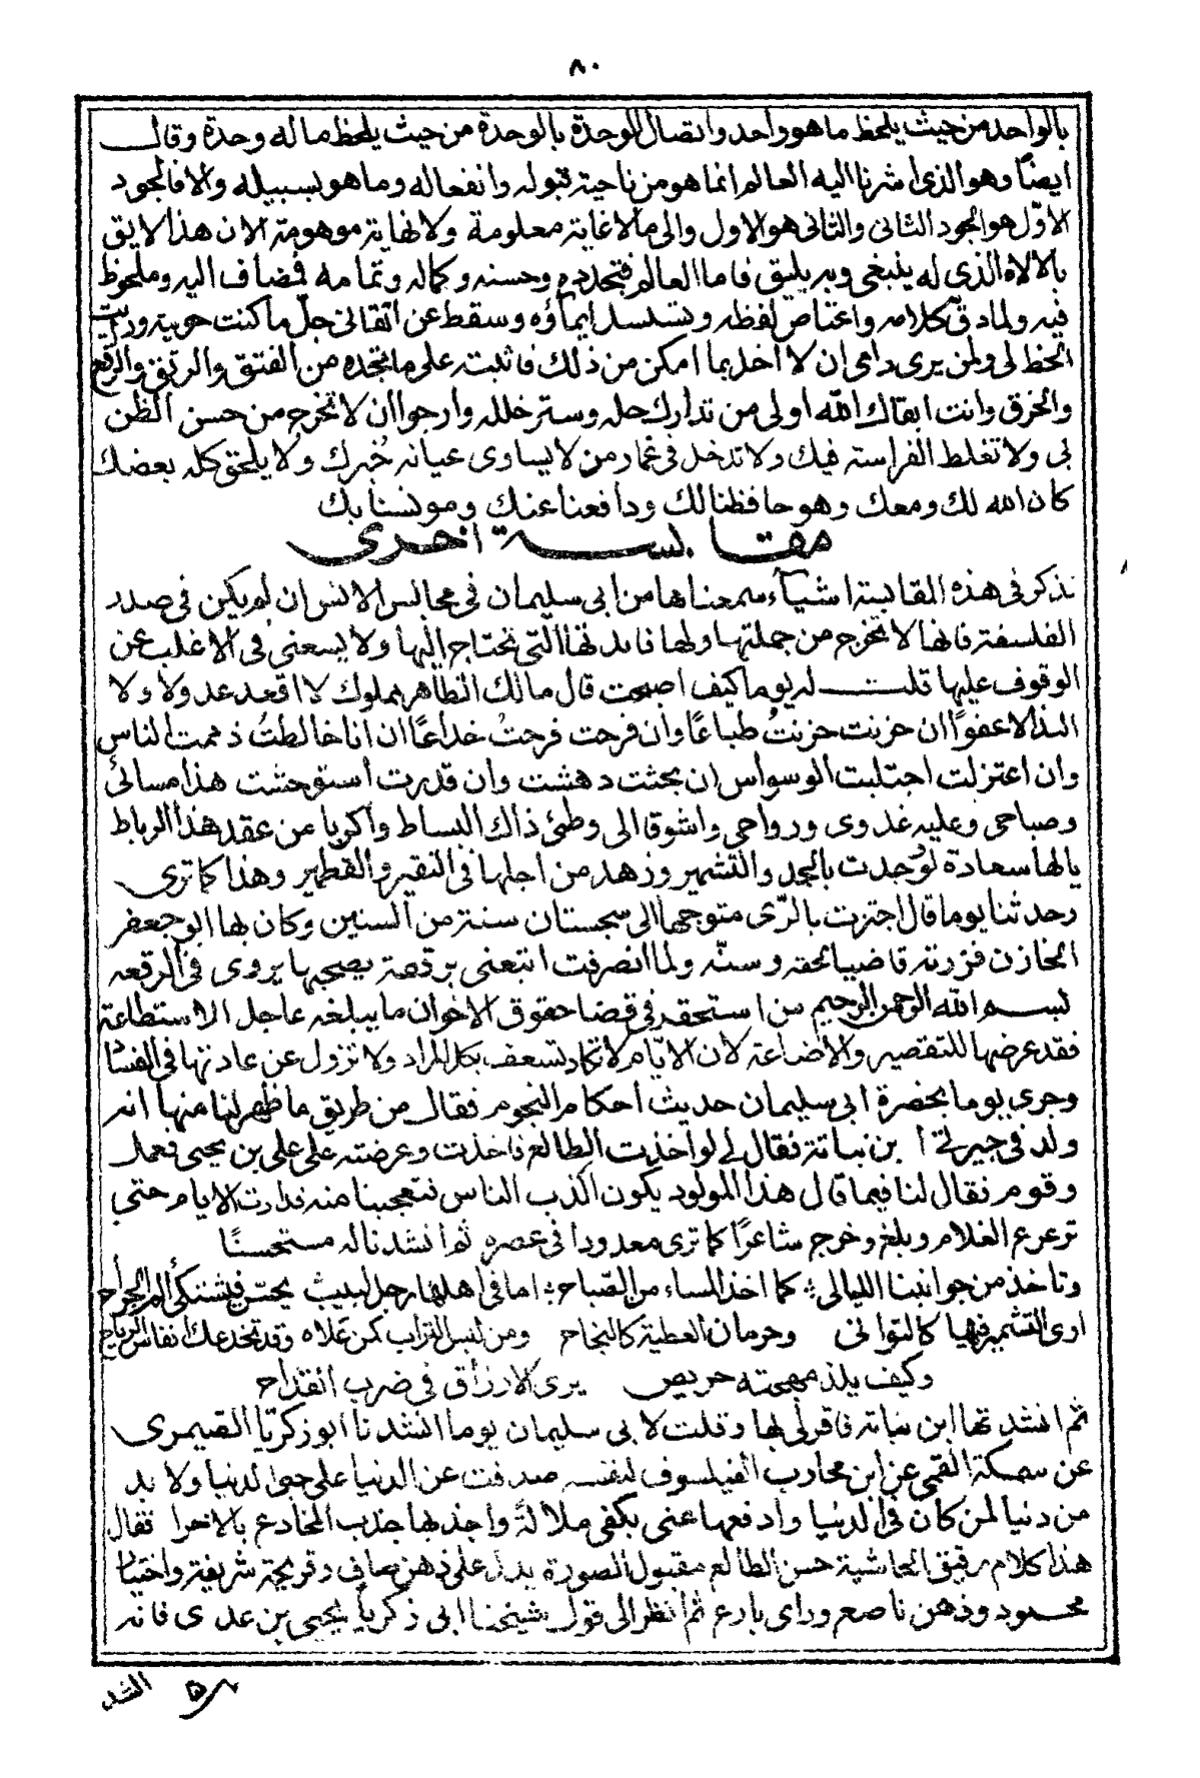 ٨٠
بالواحد من حيث يلحظ ما هو واحد واتصال الوحدة بالوحدة من حيث يلحظ ما له وحدة وقال
ايضًا وهو الذى اشرنا اليه العالم انما هو من ناحية قبوله وانفعاله وما هو بسبيله والا فالجود
الاوّل هو الجود الثانى والثانى هو الاول والى ما لا غاية معلومة ولا نهاية موهومة الا ان هذا لايق
بالاله الذى له ينبغى وبه يليق فاما العالم فتجدده وحسنه وكماله وتمامه فمضاف اليه وملحوظ
فيه ولما دقّ كلامه واعتاص لفظه وتسلسل ايماؤه وسقط عن اتقانى جلّ ما كنت حويته ورايت
الحظ لى ولمن يرى دامى ان لا اخل بما امكن من ذلك فاثبته على ما تجده من الفتق والرتق والرقع
والخرق وانت ابقاك الله اولى من تدارك حله وستر خلله وارجوا ان لا تخرج من حسن الظن
بى ولا تغلط الفراسة فيك ولا تدخل فى غمار من لا يساوى عيانه خُبرك ولا يلحق كله بعضك
كان الله لك ومعك وهو حافظنا لك ودافعنا عنك ومونسنا بك
مقابسة اخرى
نذكر فى هذه المقابسة اشياء سمعناها من ابى سليمان فى مجالس الانس ان لم يكن فى صدد
الفلسفة فانها لا تخرج من جملتها ولها فائدتها التى تحتاج اليها ولا يسعنى فى الاغلب عن
الوقوف عليها قلت له يوما كيف اصبحت قال مالك الظاهر مملوك لا اقعد عدولا ولا
الذ الا عفوًا ان حزنت حزنتُ طباعًا وان فرحت فرحتُ خداعًا ان انا خالطتُ ذممت الناس
وان اعتزلت اجتلبت الوسواس ان بحثت دهشت وان قدرت استوحشت هذا مسائى
وصباحى وعليه غدوى ورواحى واشوقا الى وطئ ذاك البساط واكربا من عقد هذا الرباط
يا لها سعادة لو وُجدت بالجد والتشمير وزهد من اجلها فى النقير والقطمير وهذا كما ترى
وحدثنا يوما قال اجتزت بالرّى متوجها الى سجستان سنة من السنين وكان بها ابو جعفر
الخازن فزرته قاضيا لحقه وسنّه ولما انصرفت اتبعنى برقعة يصحبها يروى فى الرقعه
بسم الله الرحمن الرحيم من استحقر فى قضا حقوق الاخوان ما يبلغه عاجل الاستطاعة
فقد عرضها للتقصير والاضاعة لان الايّام لا تكاد تسعف بكل المراد ولا تزول عن عادتها فى الفساد
وجرى يوما بحضرة ابى سليمان حديث احكام النجوم فقال من طريق ما ظهر لنا منها انه
ولد فى جيرتى ابن نباتة فقال لى لو اخذت الطالع فاخذت وعرضته على على بن يحيى فعمل
وقوم فقال لنا فيما قال هذا المولود يكون اكذب الناس فتعجبنا منه فدارت الايام حتى
ترعرع الغلام وبلغ وخرج شاعرًا كما ترى معدودا فى عصره ثم انشدنا له مستحسنًا
وتاخذ من جوانبنا الليالى كما اخذ المساء من الصباح اما فى اهلها رجل لبيب يحسّ فيشتكى الم الجراح
ارى التشمير فيها كالتوانى وحرمان العطية كالنجاح ومن لبس التراب كمن علاه وقد تخدعك انفاس الرياح
وكيف يلذ مهجته حريص يرى الارزاق فى ضرب القداح
ثم انشدتها ابن نباته فاقرلى بها وقلت لابى سليمان يوما انشدنا ابو زكريّا الصيمرى
عن سمكة القمى عن ابن محارب الفيلسوف لنفسه صدفت عن الدنيا على حبى الدنيا ولا بد
من دنيا لمن كان فى الدنيا وادفعها عنى بكفى ملالةً واجذبها جذب المخادع بالاخرا فقال
هذا كلام رقيق الحاشية حسن الطالع مقبول الصورة يدل على ذهن صاف وقريحة شريفة واختيار
محمود وذهن ناصع وراى بارع ثم انظر الى قول شيخنا ابى زكريا يحيى بن عدى فانه
انشد